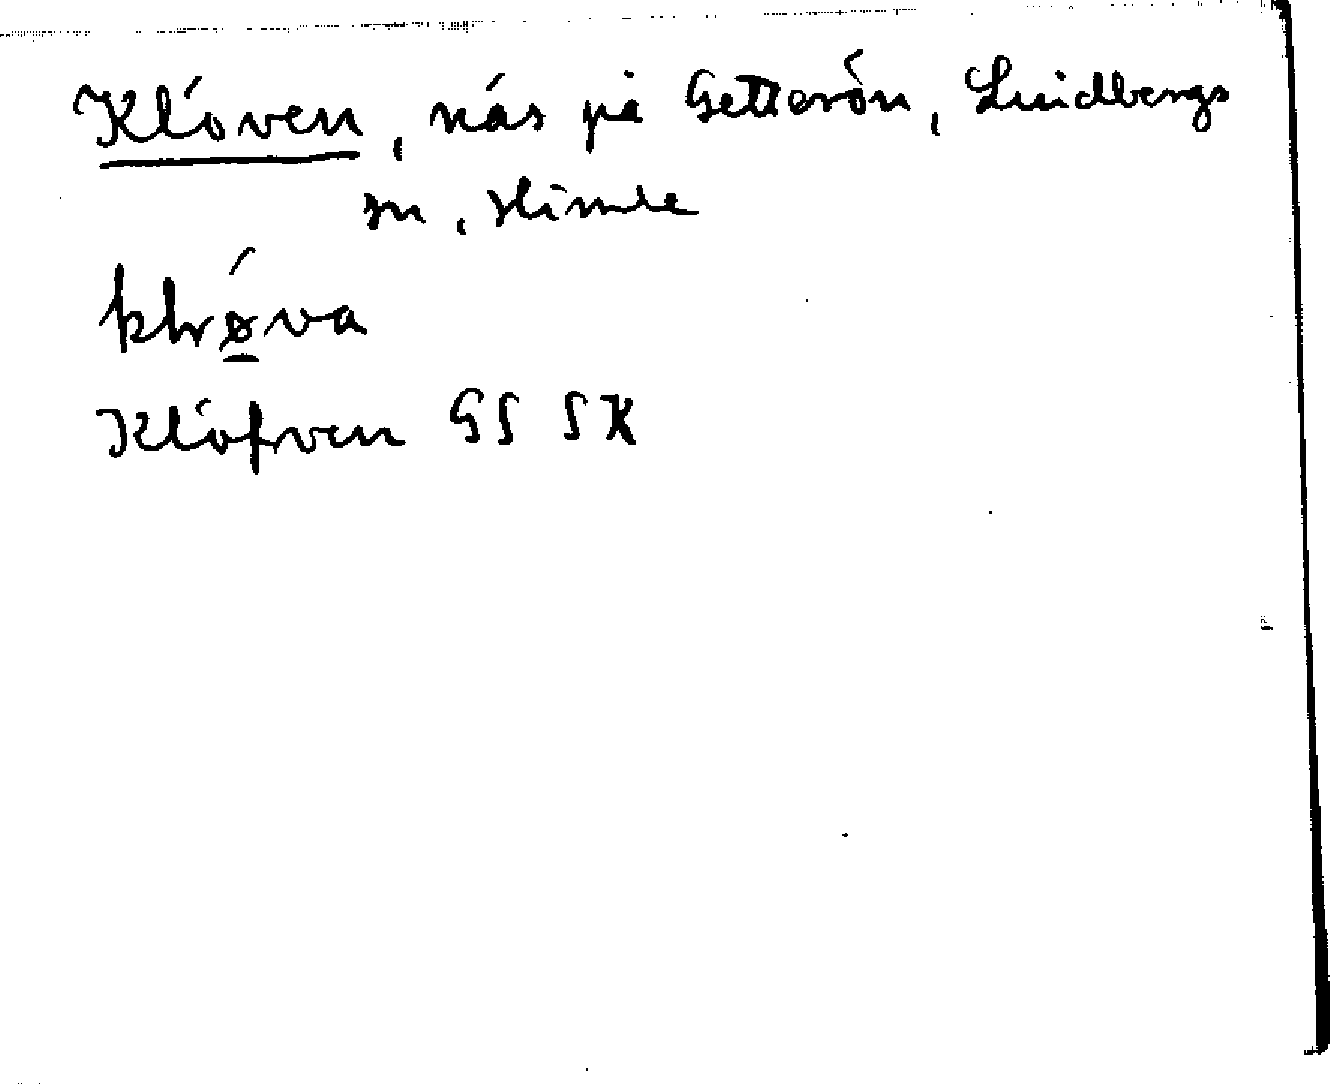 Klöven, näs på Getterön, Lindbergs
sn, Himle
klrǿva
Klöfven GS SK